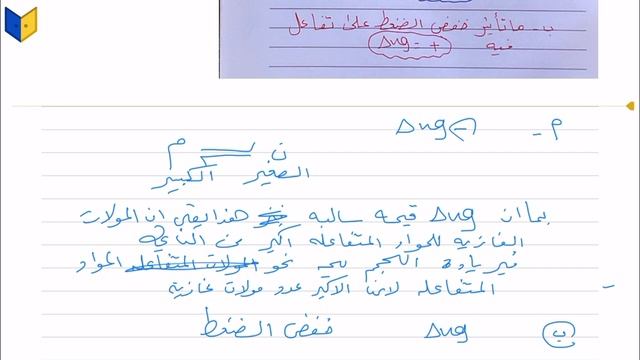 ب - ما تأثير خفض الضغط على تفاعل
فيه Δng = +
م - Δng (-)
ن م
الصغير الكبير
بما ان Δng قيمه سالبه هذا يعني ان المولات
الغازيه للمواد المتفاعله اكبر من الناتجه
فبزيادة الحجم يتجه نحو المولات المتفاعله المواد
المتفاعله لانها الاكبر عدد مولات غازية
ب Δng خفض الضغط